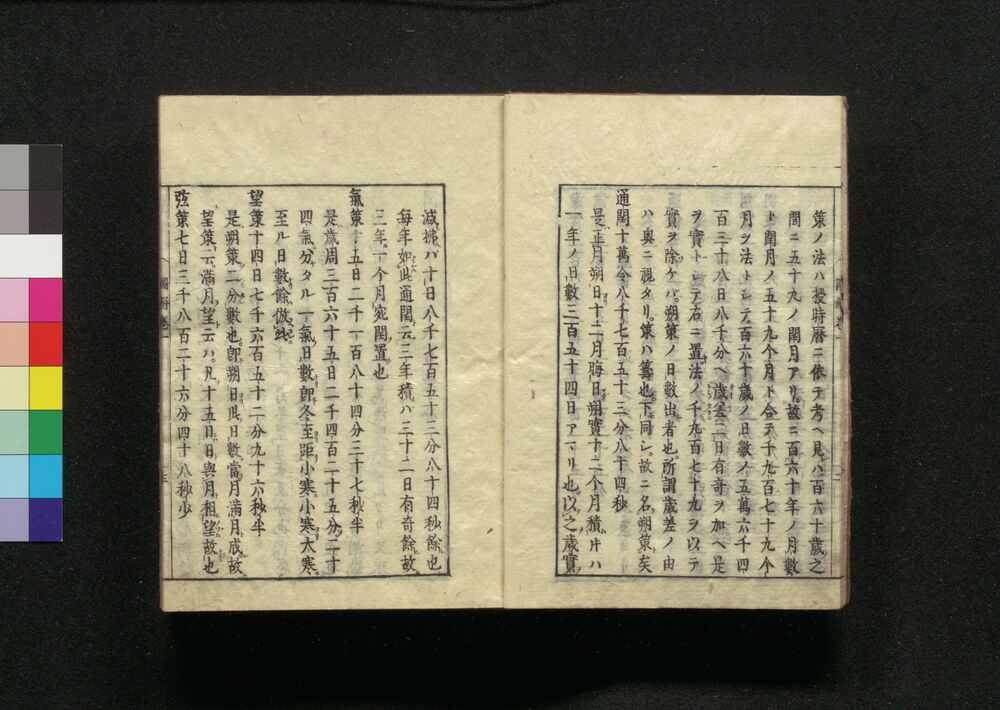 策ノ法ハ授時暦ニ依テ考ヘ見ハ百六十歳之
間ニ五十九ノ閏月アリ故ニ百六十年ノ月數
ト閏月ノ五十九个月ト合テ千九百七十九个
月ヲ法トシテ百六十歳ノ日數ノ五萬六千四
百三十八日八千分ヘ歳差二日有奇ヲ加ヘ是
ヲ實トシテ右ニ置法ノ千九百七十九ヲ以テ
實ヲ除ケバ朔策ノ日數出者也所謂歳差ノ由
ハ奥ニ視タリ策ハ籌也下同シ故ニ名朔策矣
通閏十萬令八千七百五十三分八十四秒
是正月朔日十二月晦日朔實十二个月積片ハ
一年ノ日數三百五十四日アマリ也以之歳實
減攄バ十日八千七百五十三分八十四秒餘也
毎年如此通閏云三年積ハ三十二日有奇餘故
三年一个月宛閏置也
氣策十五日二千一百八十四分三十七秒半
是歳周三百六十五日二千四百二十五分二十
四氣分タル一氣日數即冬至距小寒小寒大寒
至ル日數餘倣
望策十四日七千六百五十二分九十六秒半
是朔策二分數也即朔日日數當月滿月成故
望策云滿月望云ハ凡十五日日與月相望故也
弦策七日三千八百二十六分四十八秒少